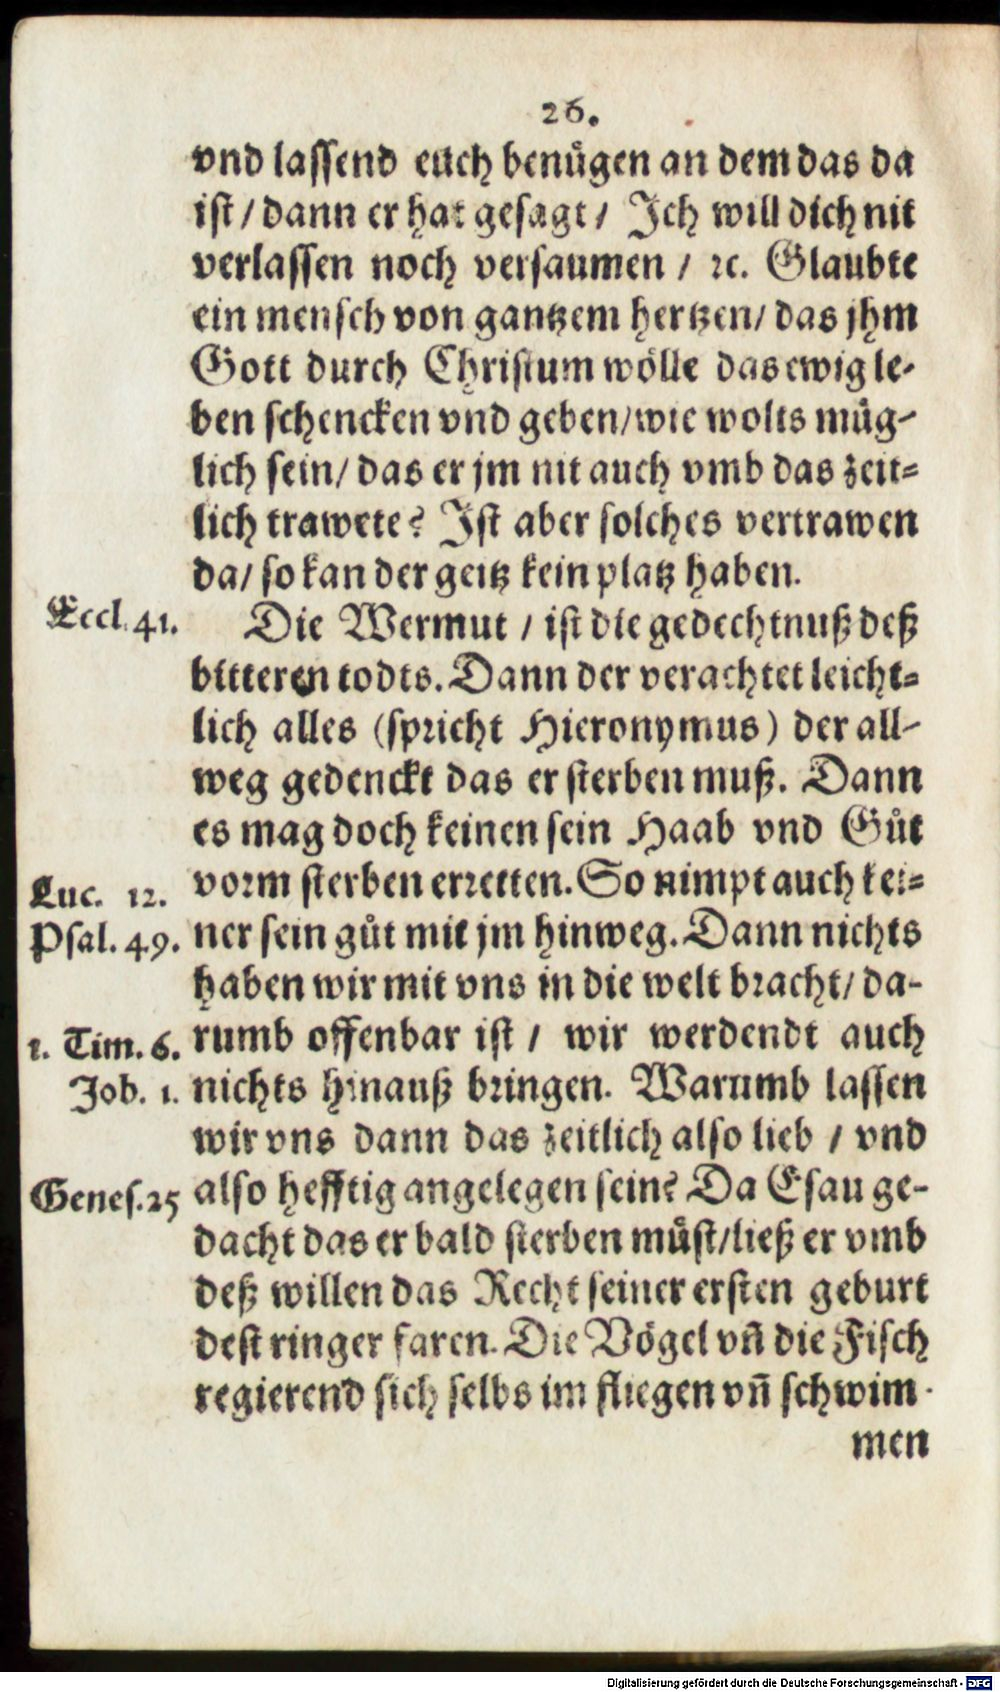 26.
vnd lassend euch benuͤgen an dem das da
ist / dann er hat gesagt / Jch will dich nit
verlassen noch versaumen / ꝛc. Glaubte
ein mensch von gantzem hertzen / das jhm
Gott durch Christum woͤlle das ewig le-
ben schencken vnd geben / wie wolts muͤg-
lich sein / das er jm nit auch vmb das zeit-
lich trawete? Jst aber solches vertrawen
da / so kan der geitz kein platz haben.
Eccl. 41.
Die Wermut / ist die gedechtnuß deß
bitteren todts. Dann der verachtet leicht-
lich alles (spricht Hieronymus) der all-
weg gedenckt das er sterben muß. Dann
es mag doch keinen sein Haab vnd Guͦt
Luc. 12.
vorm sterben erretten. So nimpt auch kei-
Psal. 49.
ner sein guͦt mit jm hinweg. Dann nichts
haben wir mit vns in die welt bracht / da-
1. Tim. 6.
rumb offenbar ist / wir werdendt auch
Job. 1.
nichts hinauß bringen. Warumb lassen
wir vns dann das zeitlich also lieb / vnd
Genes. 25
also hefftig angelegen sein? Da Esau ge-
dacht das er bald sterben muͤst / ließ er vmb
deß willen das Recht seiner ersten geburt
dest ringer faren. Die Voͤgel vñ die Fisch
regierend sich selbs im fliegen vñ schwim-
men
Digitalisierung gefördert durch die Deutsche Forschungsgemeinschaft - DFG